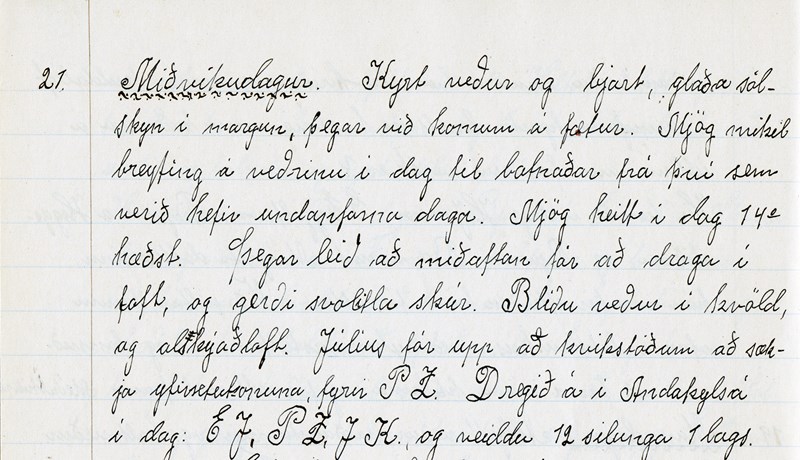 21. Miðvikudagur. Kyrt veður og bjart, glaða sól-
skyn í morgun, þegar við komum á fætur. Mjög mikil
breyting á veðrinu í dag til batnaðar frá því sem
verið hefir undanfarna daga. Mjög heitt í dag 14°
hæðst. Þegar leið að miðaftan fór að draga í
loft, og gerði svolitla skúr. Blíðu veður í kvöld,
og alskýað loft. Júlíus fór upp að kvikstöðum að sæk-
ja yfirsetukonuna, fyrir P Z. Dregið á í Andakylsá
í dag: E J, P Z, J K., og veiddu 12 silunga 1 lags.